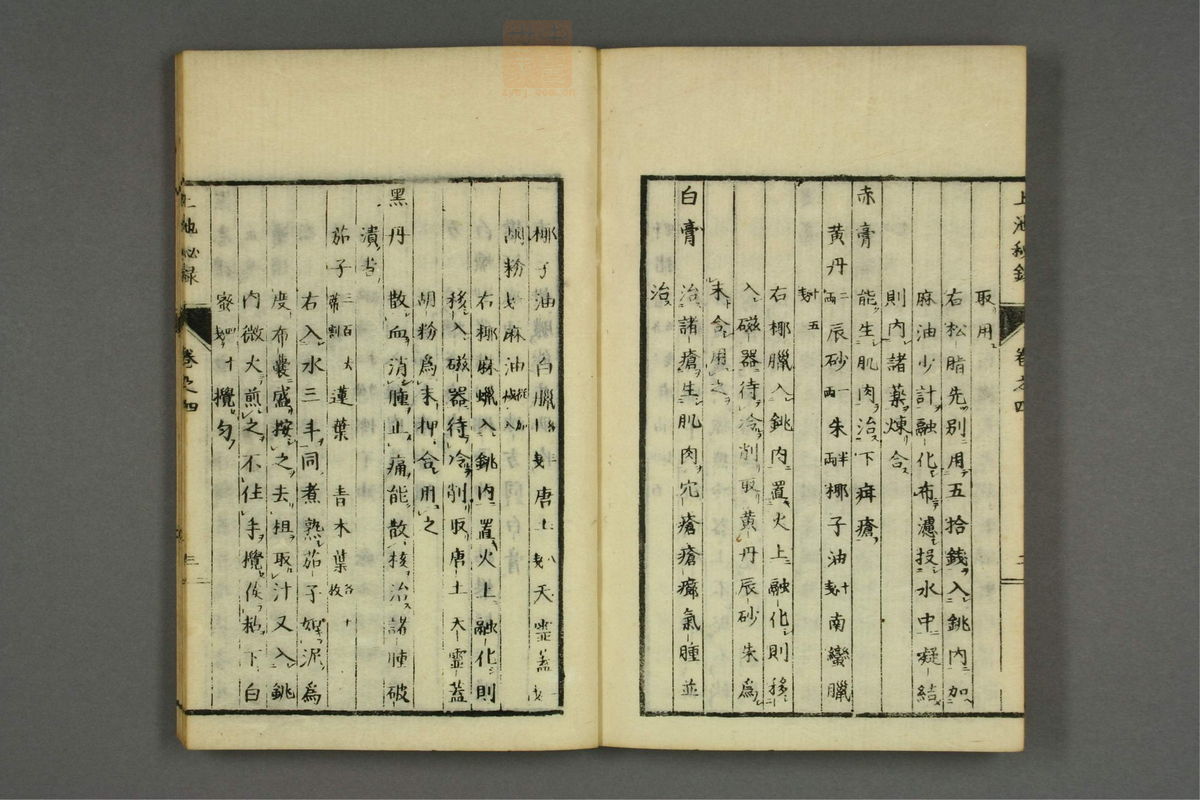 上池秘録
卷之四
取用
右松脂先別用五拾錢入銚内加
麻油少計融化布濾投水中凝結
則内諸薬煉合
赤膏 能生肌肉治下疳瘡
黄丹二両辰砂一両朱半両椰子油十戔南蠻臘
十五戔
右椰臘入銚内置火上融化則移
入磁器待冷削取黄丹辰砂朱為
末合用之
白膏 治諸瘡生肌肉穴瘡瘡癤氣腫並
治
椰子油 白臘各戔 唐土八戔 天霊蓋戔
胡粉戔 麻油
右椰麻蠟入銚内置火上融化則
移入磁器待冷削取唐土天霊蓋
胡粉爲末抻合用之
黑丹 散血消腫止痛能散核治諸腫破
潰者
茄子三百去蔕 蓮葉 青木葉各十枚
右入水三斗同煮熟茄子如泥爲
度布嚢盛按之去柤取汁又入銚
内微火煎之不住手攪候粘下白
蜜四十戔攪匀
上池秘録
卷之四
三